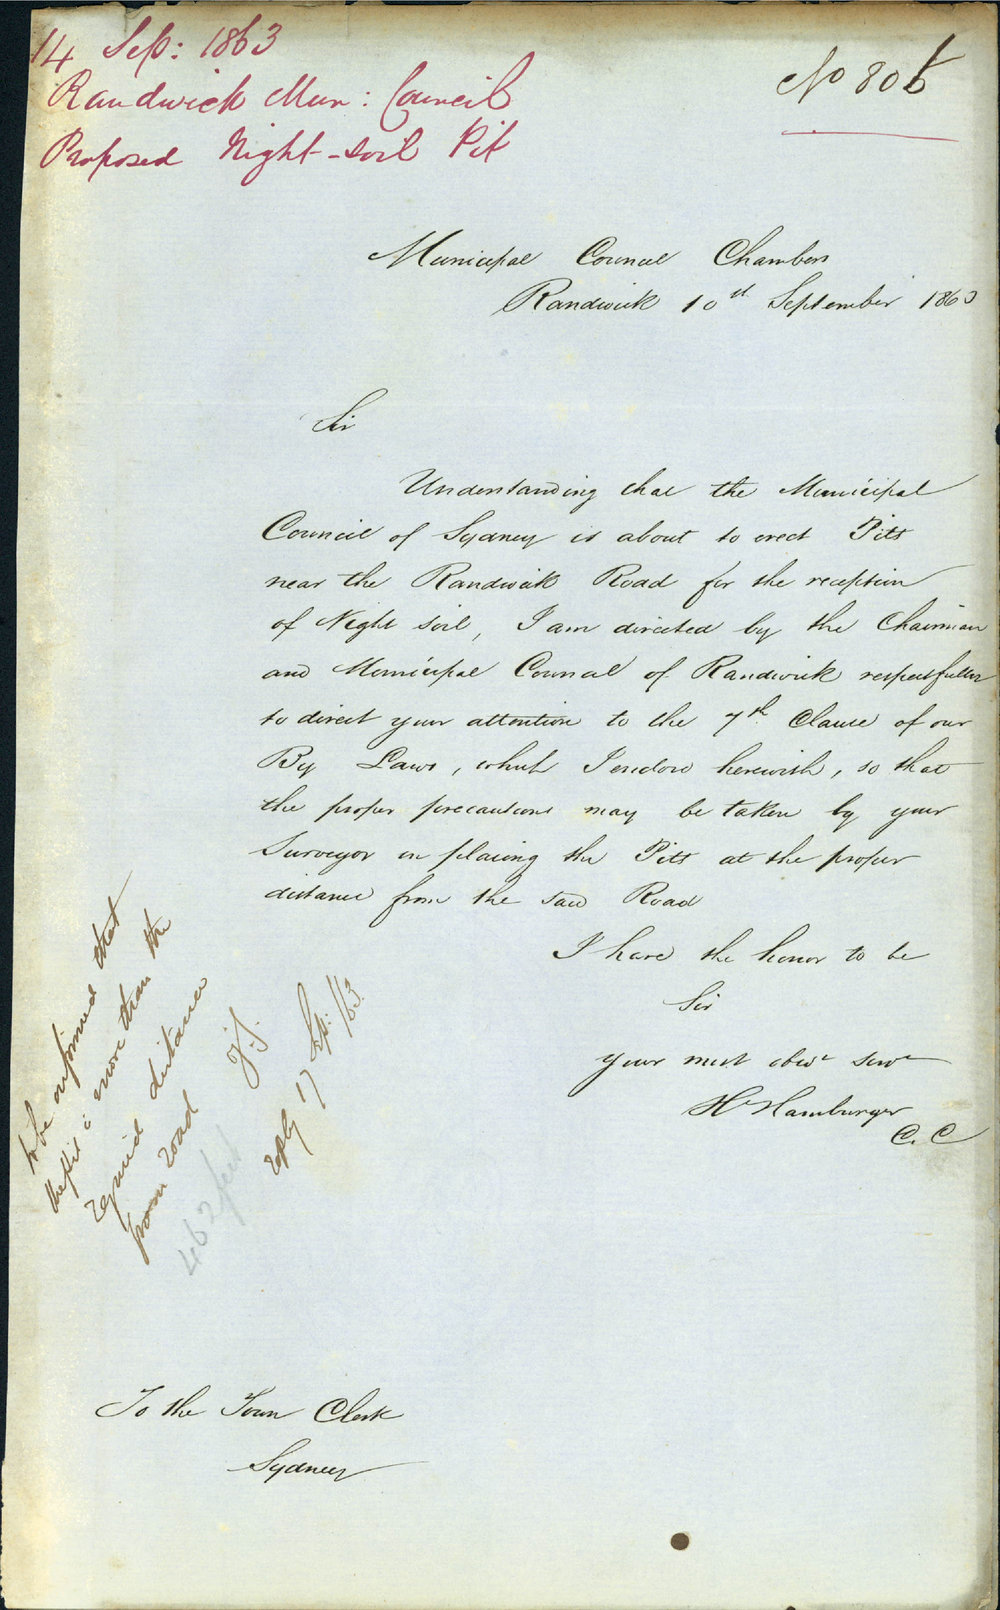 14 Sep: 1863
Randwick Mun: Council
Proposed Night-soil Pit
No 806
Municipal Council Chambers
Randwick 10st September 1863
Sir
Understanding that the Municipal
Council of Sydney is about to erect Pitts
near the Randwick Road for the reception
of Night soil, I am directed by the Chairman
and Municipal Council of Randwick respectfully
to direct your attention to the 7th Clause of our
By Laws, which I enclose herewith, so that
the proper precautions may be taken by your
Surveyor in placing the Pitts at the proper
distance from the said Road
I have the honor to be
Sir
your most obedt servt
H Hamburger
C. C
to be informed that
the pit is more than the
required distance
from road
462 feet
reply 17 Sep: /63
To the Town Clerk
Sydney